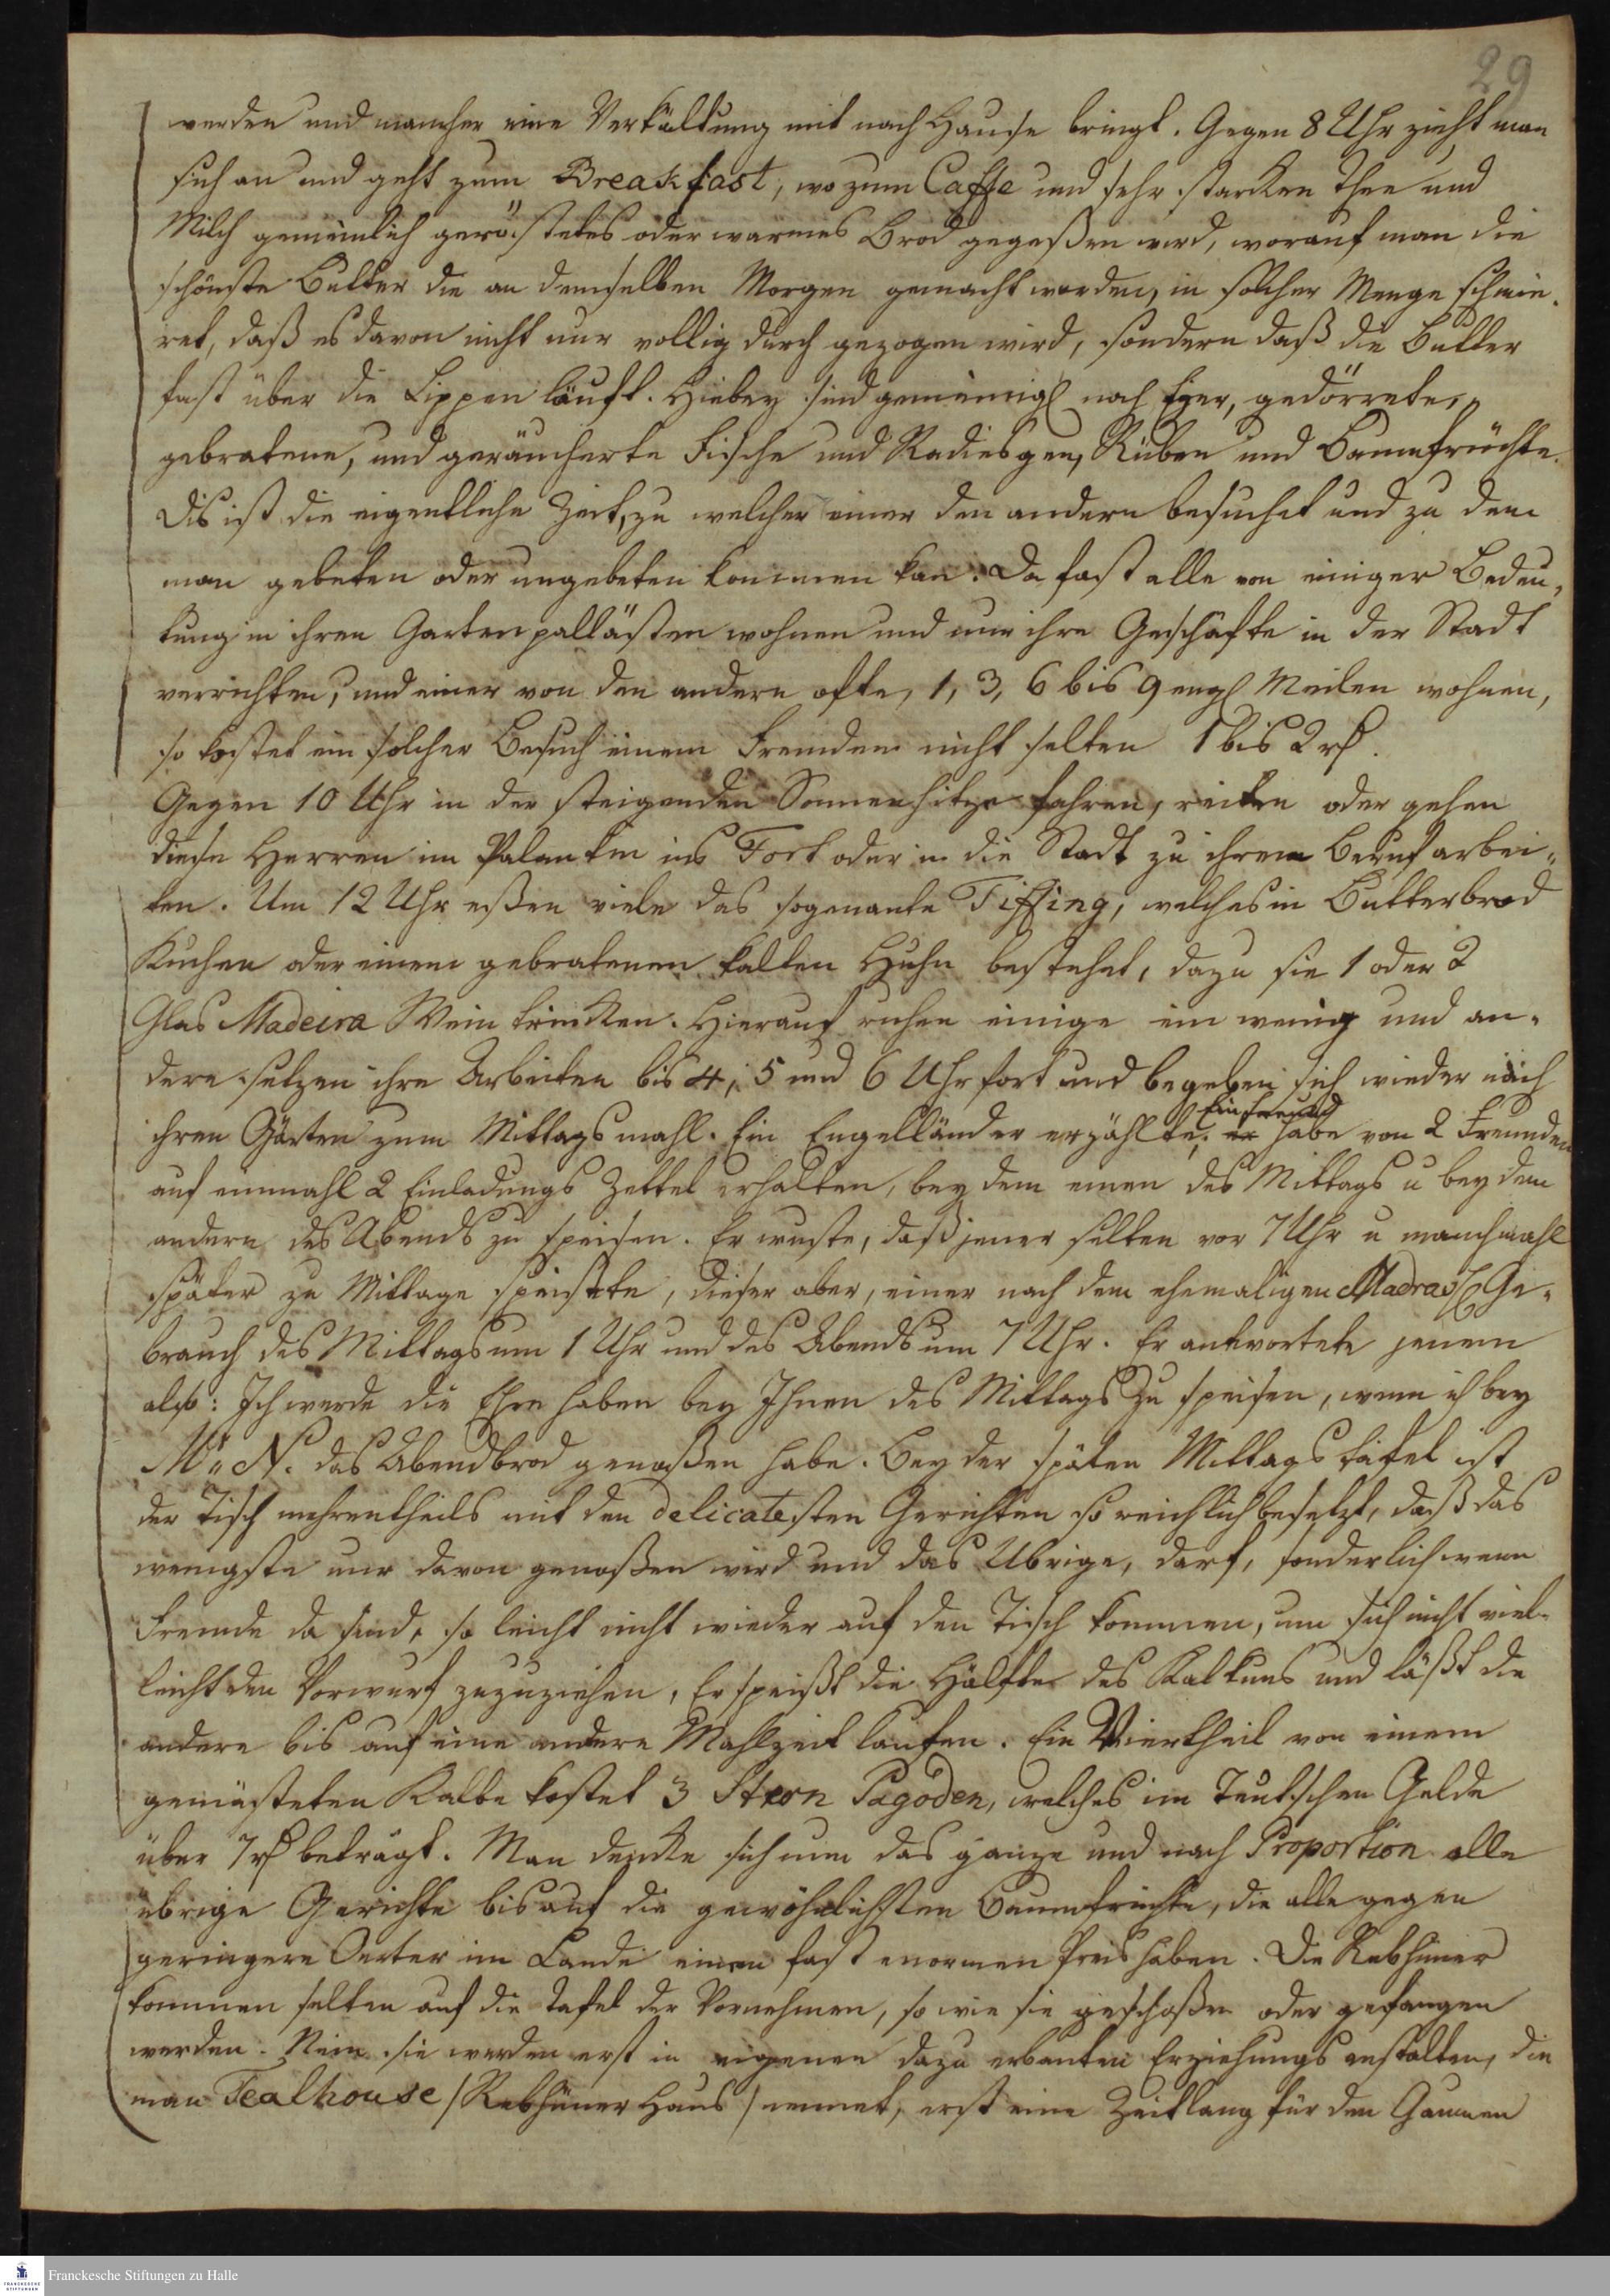 29
werden und mancher eine Verkältung mit nach Hause bringt. Gegen 8 Uhr zieht man
sich an und geht zum Breakfast, wo zum Caffe und sehr starcken Thee und
Milch gemeinlich geröstetes oder warmes Brod gegeßen wird, worauf man die
schönste Butter die an demselben Morgen gemacht worden, in solcher Menge schmie-
ret, daß es davon nicht nur vollig durch gezogen wird, sondern daß die Butter
fast über die Lippen läuft. Hiebey sind gemeinigl noch Eyer, gedörrete,
gebratene, und geräucherte Fische und Radiesgen, Rüben und Baumfrüchte.
Dis ist die eigentliche Zeit, zu welcher einer den andern besuchet und zu dem
man gebeten oder ungebeten kommen kan. Da fast alle von einiger Bedeu-
tung in ihren Gartenpallästen wohnen und nur ihre Geschäfte in der Stadt
verrichten, und einer von den andern ofte, 1, 3, 6 bis 9 engl Meilen wohnen,
so kostet ein solcher Besuch einem Fremden nicht selten 1 bis 2 rth.
Gegen 10 Uhr in der steigenden Sonnenhitze fahren, reiten oder gehen
diese Herren im Palankin ins Fort oder in die Stadt zu ihrem Beruf arbei-
ten. Um 12 Uhr eßen viele das sogenante Tiffing, welches in Butterbrod
Kuchen oder einem gebratenen kalten Huhn bestehet, dazu sie 1 oder 2
Glas Madeira Wein trincken. Hierauf ruhen einige ein wenig und an-
dere setzen ihre Arbeiten bis 4, 5 und 6 Uhr fort und begeben sich wieder nach
ihren Gärten zum Mittagsmahl. Ein Engelländer erzählte, er Ein Freund habe von 2 Freunden
auf einmahl 2 Einladungs Zettel erhalten, bey dem einen des Mittags u bey dem
andern des Abends zu speisen. Er wuste, daß jener selten vor 7 Uhr u manchmahl
später zu Mittage speißte, dieser aber, einer nach dem ehemaligen Madrass Ge-
brauch des Mittags um 1 Uhr und des Abends um 7 Uhr. Er antwortete jenem
also: Ich werde die Ehre haben bey Ihnen des Mittags zu speisen, wenn ich bey
Mr N. das Abendbrod genoßen habe. Bey der späten Mittagstafel ist
der Tisch mehrentheils mit den delicatesten Gerichten so reichlich besetzt, daß das
wenigste nur davon genoßen wird und das Ubrige, darf, sonderlich wenn
Fremde da sind, so leicht nicht wieder auf den Tisch kommen, um sich nicht viel-
leicht den Vorwurf zuzuziehen, Er speißt die Hälfte des Kalkuns und läßt die
andere bis auf eine andere Mahlzeit laufen. Ein Viertheil von einem
gemästeten Kalbe kostet 3 Stern Pagoden, welches im Teutschen Gelde
über 7 rth beträgt. Man dencke sich nun das ganze und nach Proportion alle
übrige Gerichte bis auf die gewöhnlichsten Baumfrüchte, die alle gegen
geringere Oerter im Lande einen fast enormen Preis haben. Die Rebhüner
kommen selten auf die Tafel der Vornehmen, so wie sie geschoßen oder gefangen
werden. Nein sie werden erst in eigenen dazu erbauten Erziehungsanstalten, die
man Tealhouse /Rebhüner Haus/ nennet, erst eine Zeitlang für den Gaumen
FRANCKESCHE STIFTUNGEN
Franckesche Stiftungen zu Halle